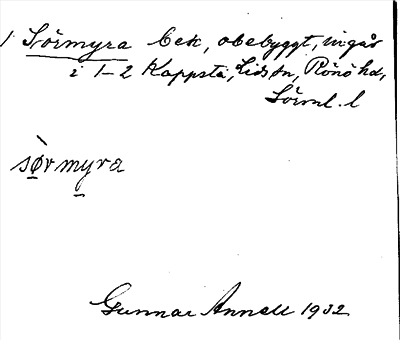 1 Sörmyra bek, obebyggt, ingår
i 1-2 Kappsta, Lids sn, Rönö hd,
Sörml. l
sørmyra
Gunnar Annell 1932